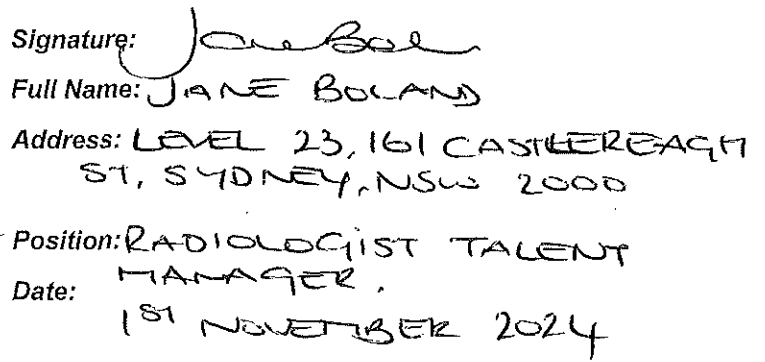 Signature: Jane Bol
Full Name: JANE BOLAND
Address: LEVEL 23, 161 CASTLEREAGH
ST, SYDNEY, NSW 2000
Position: RADIOLOGIST TALENT
MANAGER.
Date:
1ST NOVEMBER 2024